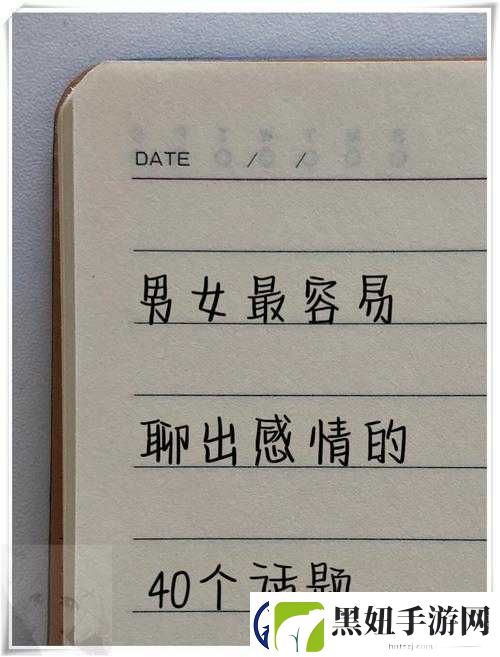 DATE / /
男女最容易
聊出感情的
40个话题
黑妞手游网